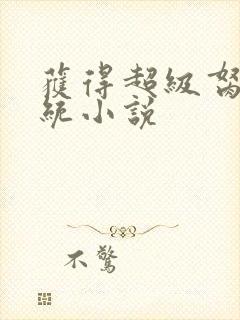 獲得超級
統小說
不驚